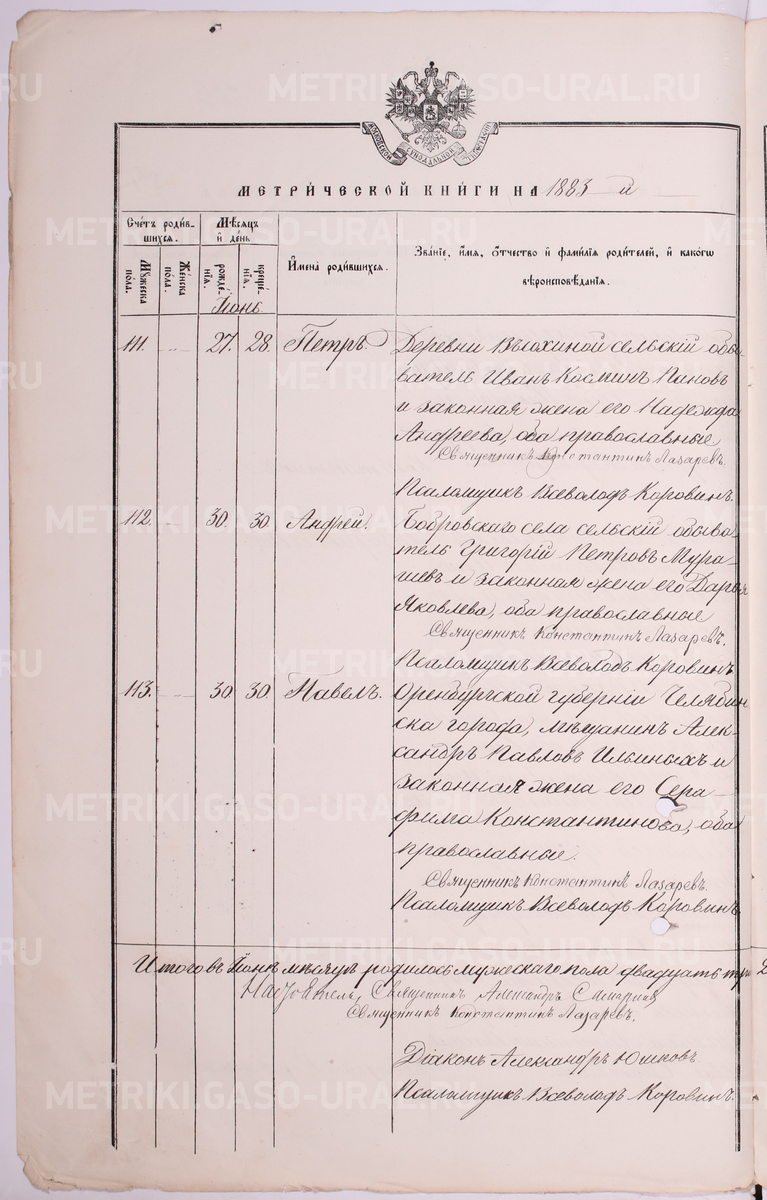 МЕТРИ́ЧЕСКОЙ КНИ́ГИ НА 1883 й
Счётъ роди́в-
шихся.
Мѣсяцъ
и҆ де́нь.
И҆мена̀ роди́вшихся.
Зва́нїе, и҆́мя, ѻ҆́тчество и҆ фами́лїя роди́телей, и҆ како́гѡ
вѣроисповѣ́данїя.
Мꙋ́жеска
по́ла.
Же́нска
по́ла.
рожде́-
нїѧ.
креще́-
нїѧ.
Іюнь.
111. 27. 28. Петръ. Деревни Вьюхиной сельскій обы-
ватель Иванъ Косминъ Пановъ
и законная жена его Надежда
Андреева, оба православные
Священникъ Константинъ Лазаревъ.
Псаломщикъ Всеволодъ Коровинъ.
112. 30. 30. Андрей. Бобровскаго села сельскій обыва-
тель Григорій Петровъ Мура-
шевъ и законная жена его Дарья
Яковлева, оба православные
Священникъ Константинъ Лазаревъ.
Псаломщикъ Всеволодъ Коровинъ.
113. 30. 30. Павелъ. Оренбургской губерніи Челябин
ска города, мѣщанинъ Алек-
сандръ Павловъ Ильиныхъ и
законная жена его Сера-
фима Константинова, оба
православные.
Священникъ Константинъ Лазаревъ.
Псаломщикъ Всеволодъ Коровинъ.
Итого въ Іюнѣ мѣсяцѣ родилось мужескаго пола двадцать три
Настоятель, Священникъ Александръ
Священникъ Константинъ Лазаревъ.
Діаконъ Александръ Юшковъ.
Псаломщикъ Всеволодъ Коровинъ.
METRIKI.GASO-URAL.RU